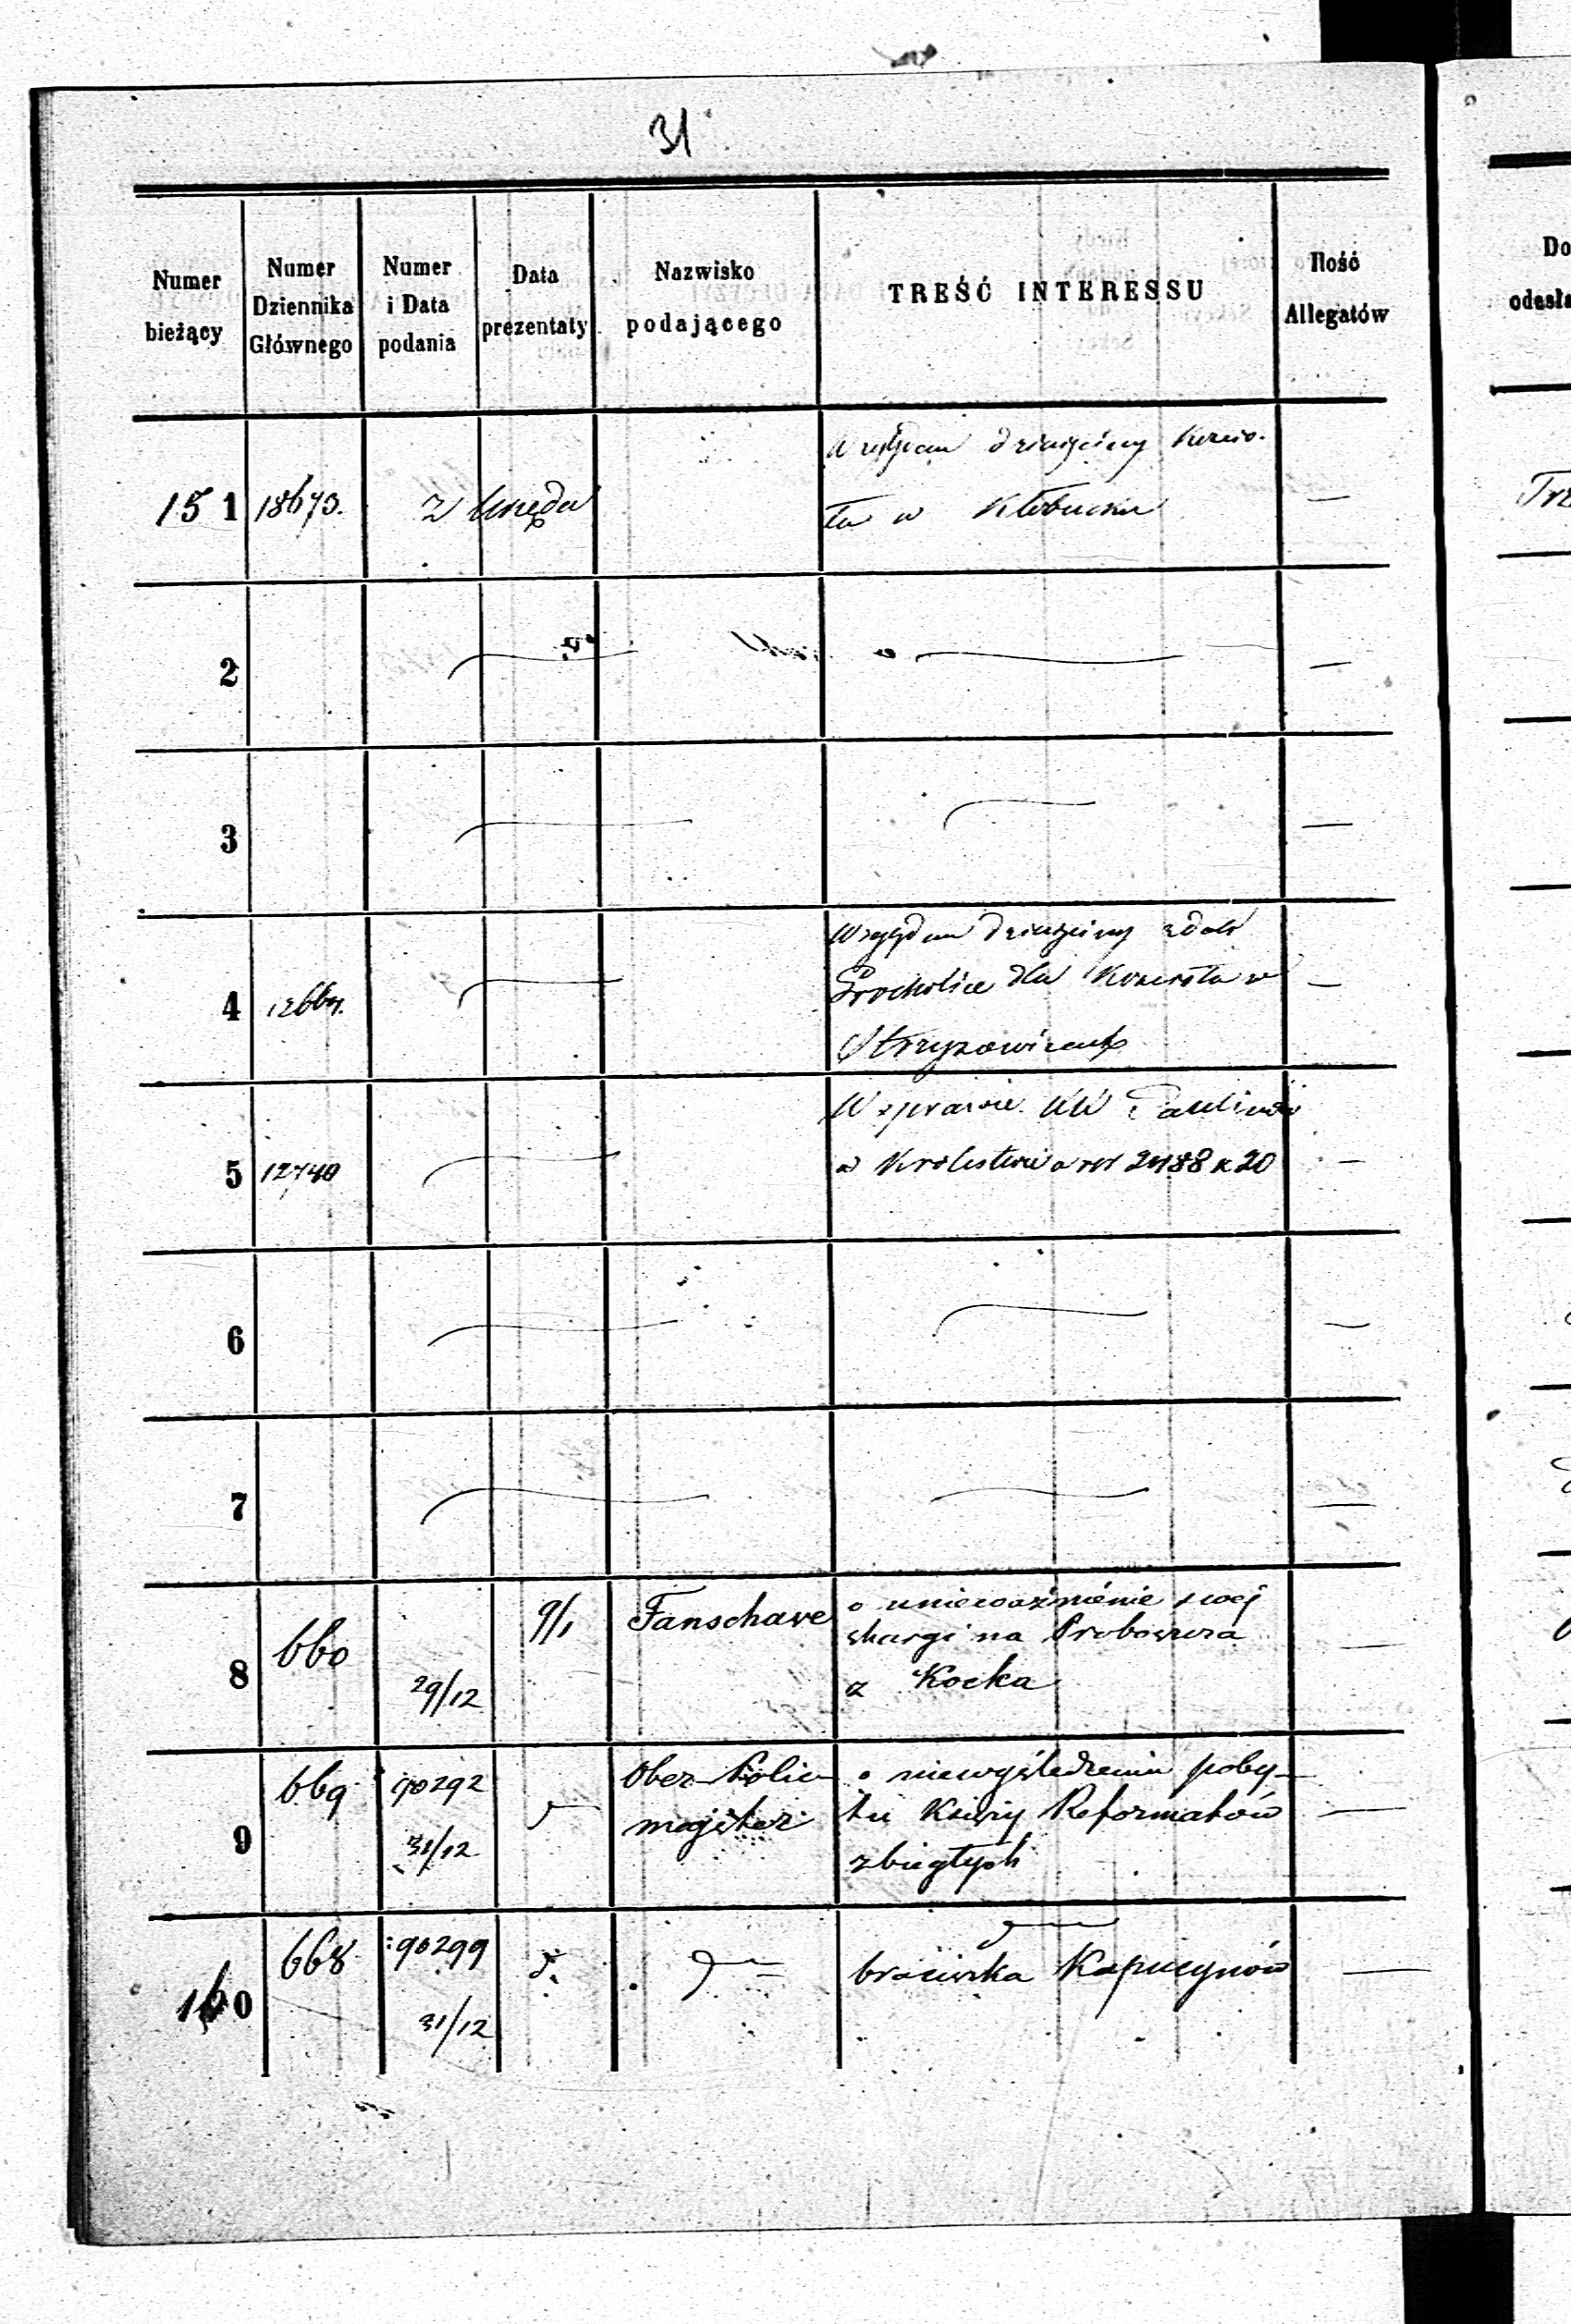 31
Numer bieżący
Numer Dziennika Głównego
Numer i Data podania
Data prezentaty
Nazwisko podającego
TREŚĆ INTERESSU
Ilość Allegatów
Do
odesła
151 18673. z Urzędu dziesięciny Kościo-
ła w Kłobucku —
2 —
3 —
4 dziesięciny z dóbr
dla Kościoła w —
5 12740 W sprawie KK Paulinów
w Królestwie 2488 —
6 —
7 —
8 660 29/12 9/1 Fanschave o unieważnienie swej
skargi na Proboszcza
z Kocka —
9 669 90292 31/12 Ober-Polic-
majster o niewyśledzeniu poby-
tu Księży Reformatów
zbiegłych —
160 668 90299 31/12 braciszka Kapucynów —